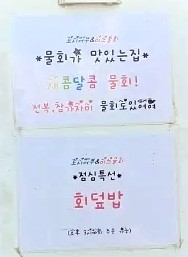 *물회가 맛있는집*
새콤달콤 물회!
전복,참가자미 물회도있어여
*점심특선*
회덮밥